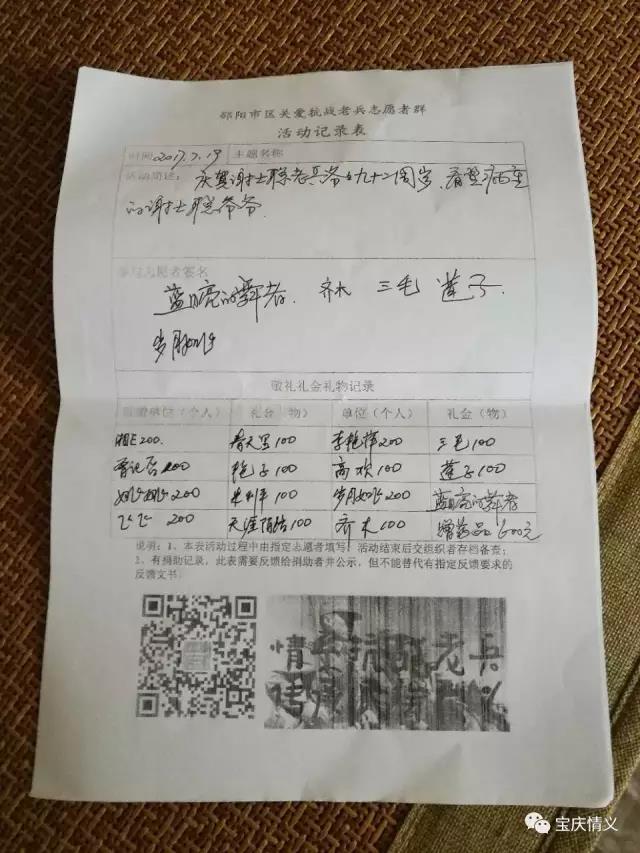 邵阳市区关爱抗战老兵志愿者群
活动记录表
时间 2017.7.19 主题名称
活动简述： 庆贺谢士聪老兵爷爷九十二周岁，看望病重
的谢士聪爷爷
参与志愿者签名
蓝月亮的舞者． 齐木 三毛 莲子
岁月如歌
敬礼礼金礼物记录
捐赠单位（个人） 礼金（物） 单位（个人） 礼金（物）
湘E 200. 春天里100 李艳萍200 三毛100
200 艳子100 高欢100 莲子100
200 100 200 蓝月亮的舞者
飞飞 200 天涯 100 齐木100 赠药品 600元
说明：1、本表活动过程中由指定志愿者填写，活动结束后交组织者存档备查；
2、有捐助记录，此表需要反馈给捐助者并公示，但不能替代有指定反馈要求的
反馈文书。
情系抗战老兵
宝庆情义